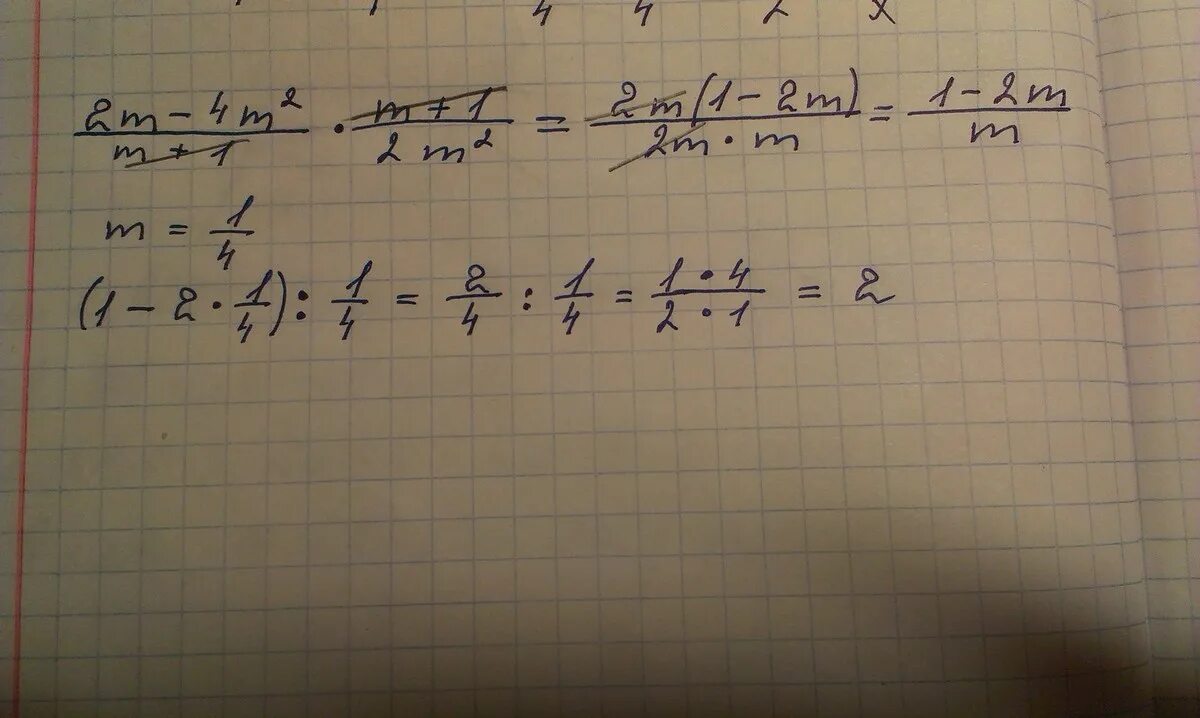 4 4 2 x
(2m - 4m²)/(m + 1) · (m + 1)/(2m²) = (2m(1 - 2m))/(2m · m) = (1 - 2m)/m
m = 1/4
(1 - 2 · 1/4) : 1/4 = 2/4 : 1/4 = (1 · 4)/(2 · 1) = 2